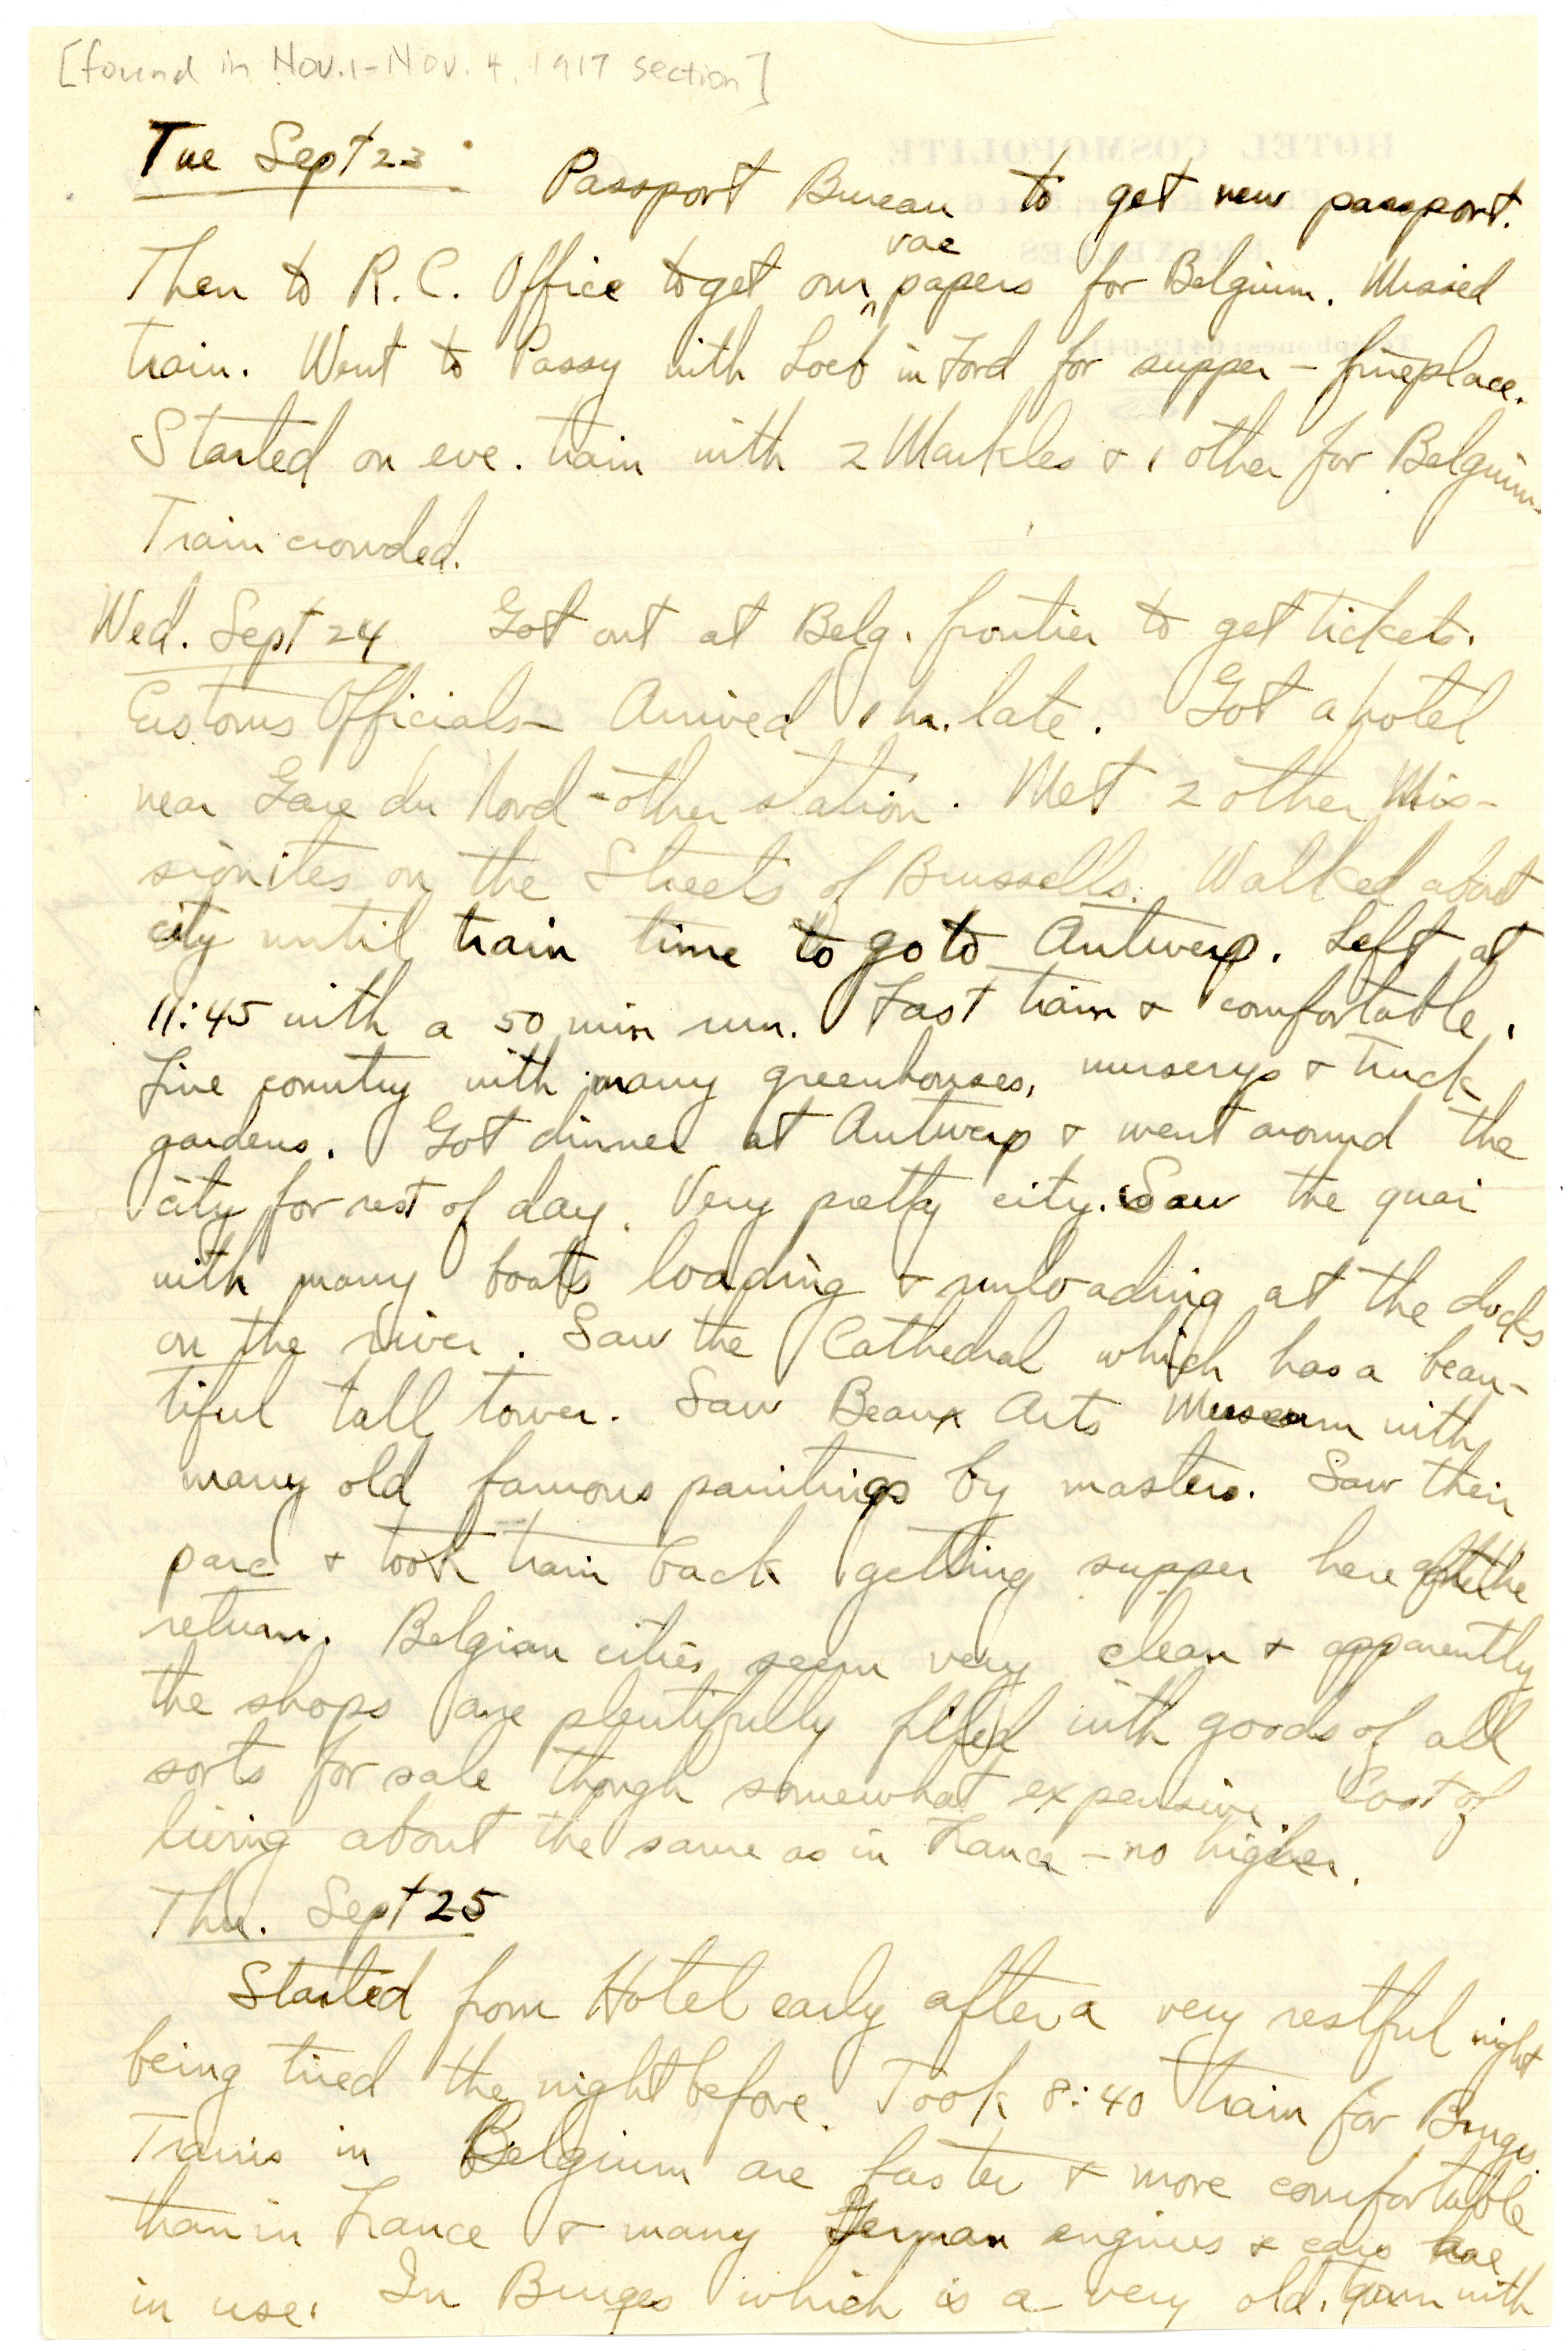 [found in Nov. 1 - Nov. 4, 1917 section]
Tue Sept 23 Passport Bureau to get new passport.
Then to R.C. Office to get our vac papers for Belgium. Missed
train. Went to Passy with Loeb in Ford for supper - fireplace.
Started on eve. train with 2 Markles & 1 other for Belgium.
Train crowded.
Wed. Sept 24 Got out at Belg. frontier to get tickets.
Customs Officials - Arrived 1 hr. late. Got a hotel
near Gare du Nord - other station. Met 2 other Mis-
sionites on the Streets of Brussells. Walked about
city until train time to go to Antwerp. Left at
11:45 with a 50 min run. Fast train & comfortable.
Fine country with many greenhouses, nurserys & truck
gardens. Got dinner at Antwerp & went around the
city for rest of day. Very pretty city. Saw the quai
with many boats loading & unloading at the docks
on the river. Saw the Cathedral which has a beau-
tiful tall tower. Saw Beaux Arts Museum with
many old famous paintings by masters. Saw their
parc & took train back getting supper here after the
return. Belgian cities seem very clean & apparently
the shops are plentifully filled with goods of all
sorts for sale though somewhat expensive. Cost of
living about the same as in France - no higher.
Thu. Sept 25
Started from Hotel early after a very restful night
being tired the night before. Took 8:40 train for Bruges.
Trains in Belgium are faster & more comfortable
than in France & many German engines & cars are
in use. In Bruges which is a very old town with